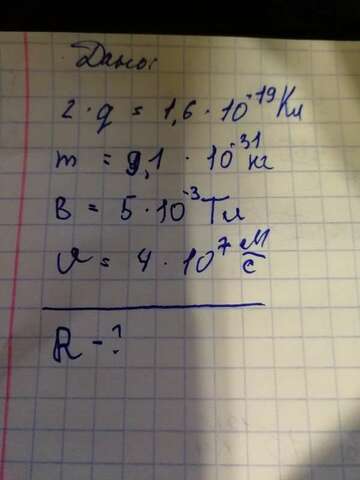 Дано:
2·q = 1,6·10⁻¹⁹ Кл
m = 9,1·10⁻³¹ кг
B = 5·10⁻³ Тл
v = 4·10⁷ м/с
R - ?